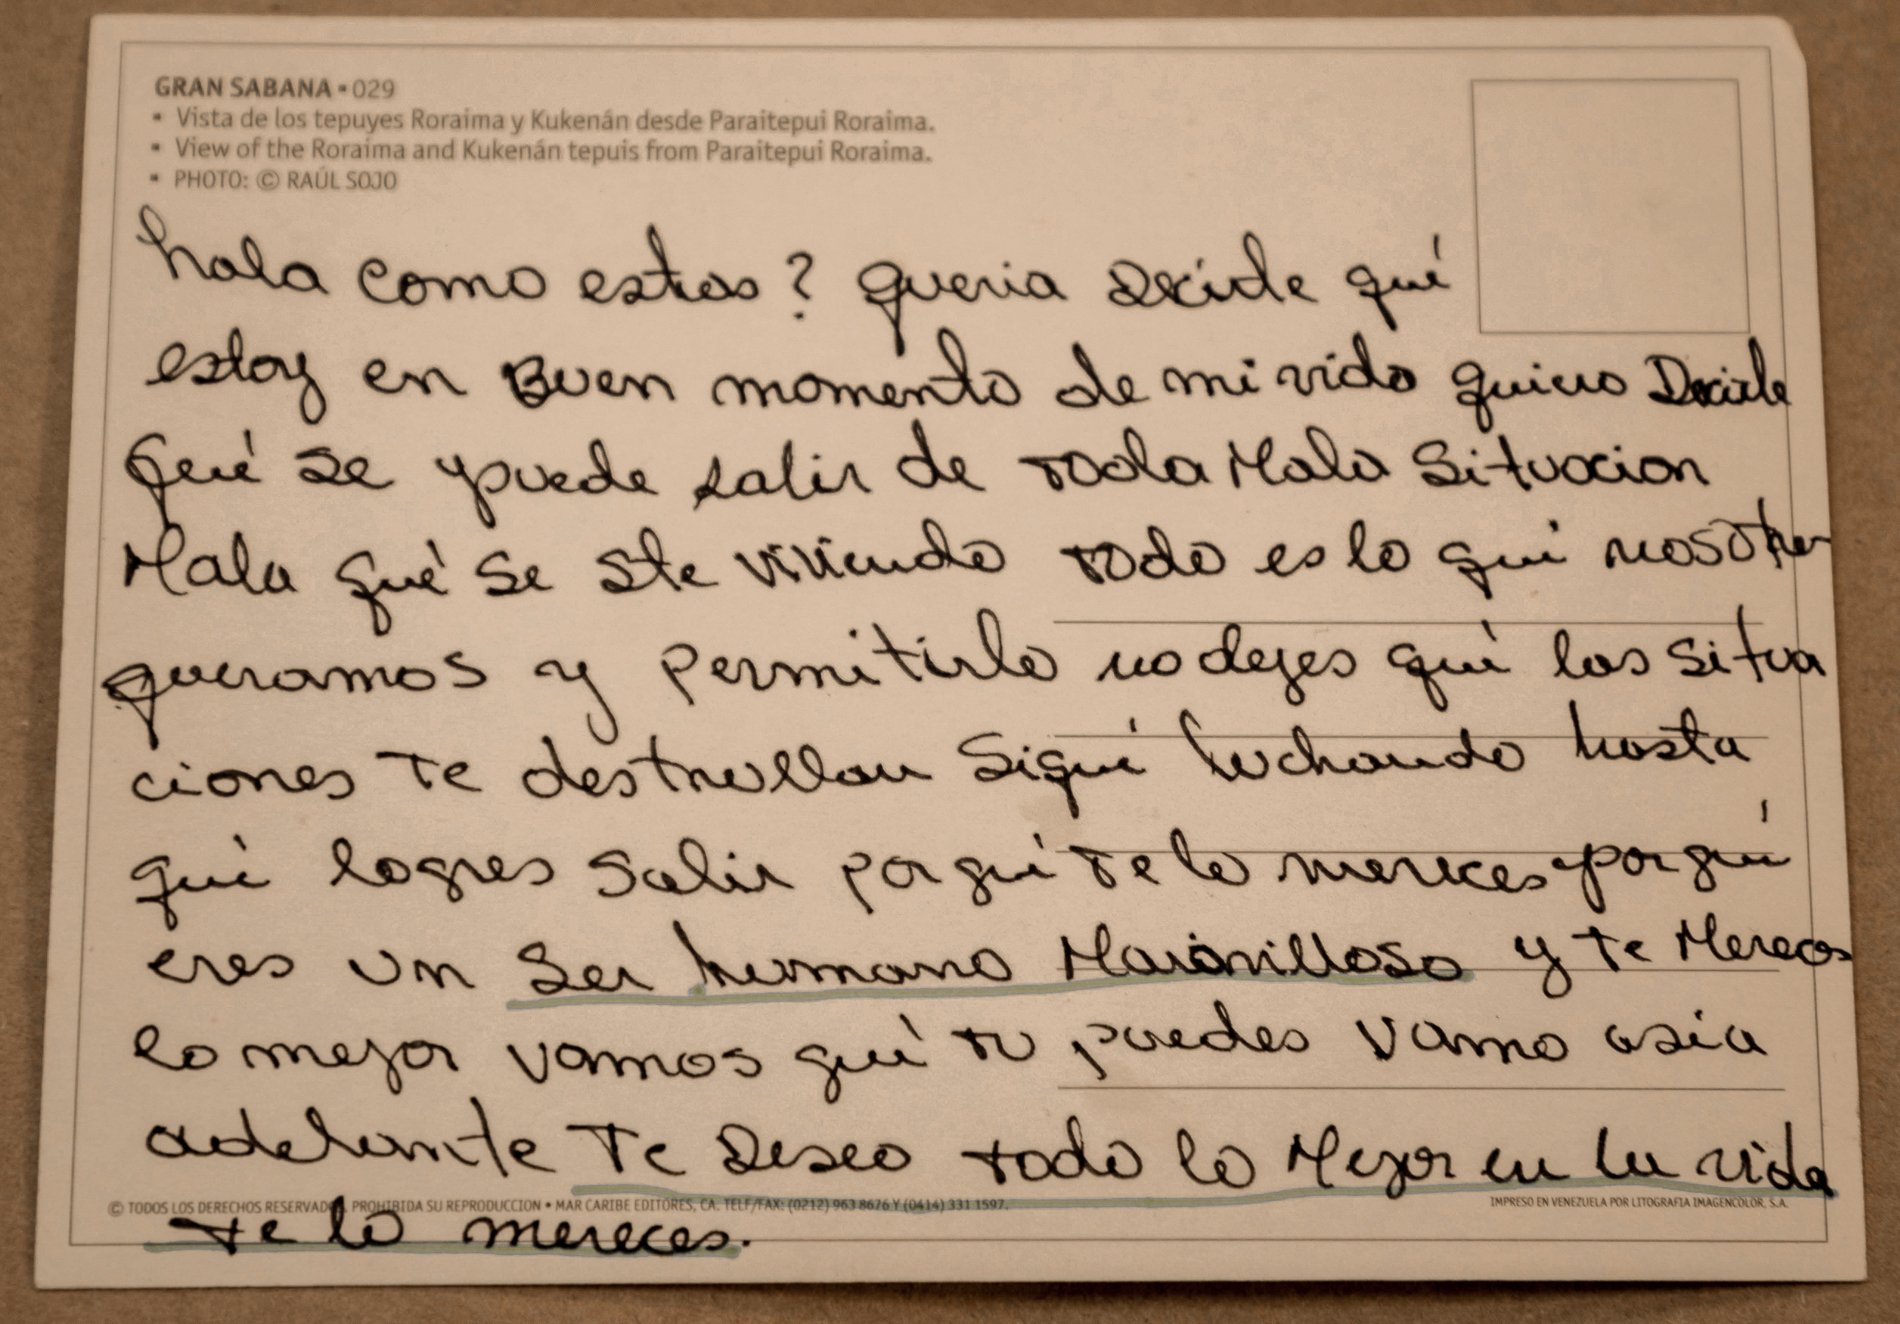 GRAN SABANA • 029
• Vista de los tepuyes Roraima y Kukenán desde Paraitepui Roraima.
• View of the Roraima and Kukenán tepuis from Paraitepui Roraima.
• PHOTO: © RAÚL SOJO
hola como estas? queria Decirle qué
estoy en Buen momento de mi vida quiero Decirle
qué se puede salir de toda Mala Situacion
Mala qué se ste viviendo todo es lo qui nosotros
queramos y permitirlo no dejes qui las situa
ciones te destrullan Siguí luchando hasta
qui logres Salir porqui te lo mereces porqui
eres un Ser humano Maravilloso y te Mereces
lo mejor vamos quí tu puedes Vamo asia
adelante Te Deseo todo lo Mejor en tu vida
© TODOS LOS DERECHOS RESERVADOS. PROHIBIDA SU REPRODUCCION • MAR CARIBE EDITORES, CA. TELF/FAX: (0212) 963 8676 Y (0414) 331 1597.
IMPRESO EN VENEZUELA POR LITOGRAFIA IMAGENCOLOR, S.A.
te lo mereces.